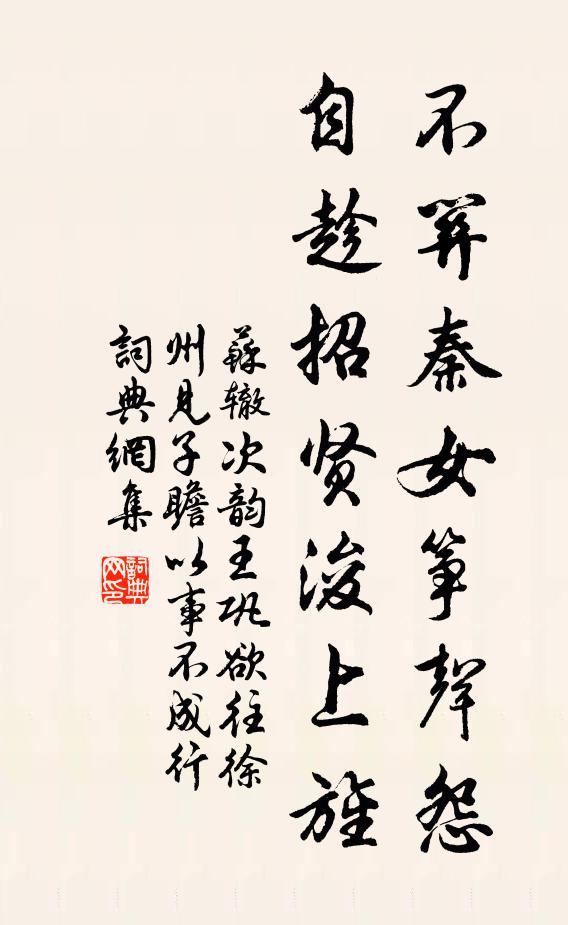 不筭秦女箏聲怨
自趁招贤浚上旌
蘇辙次韵王巩欲往徐
州見子瞻以事不成行
詞典網集
詞典
网印